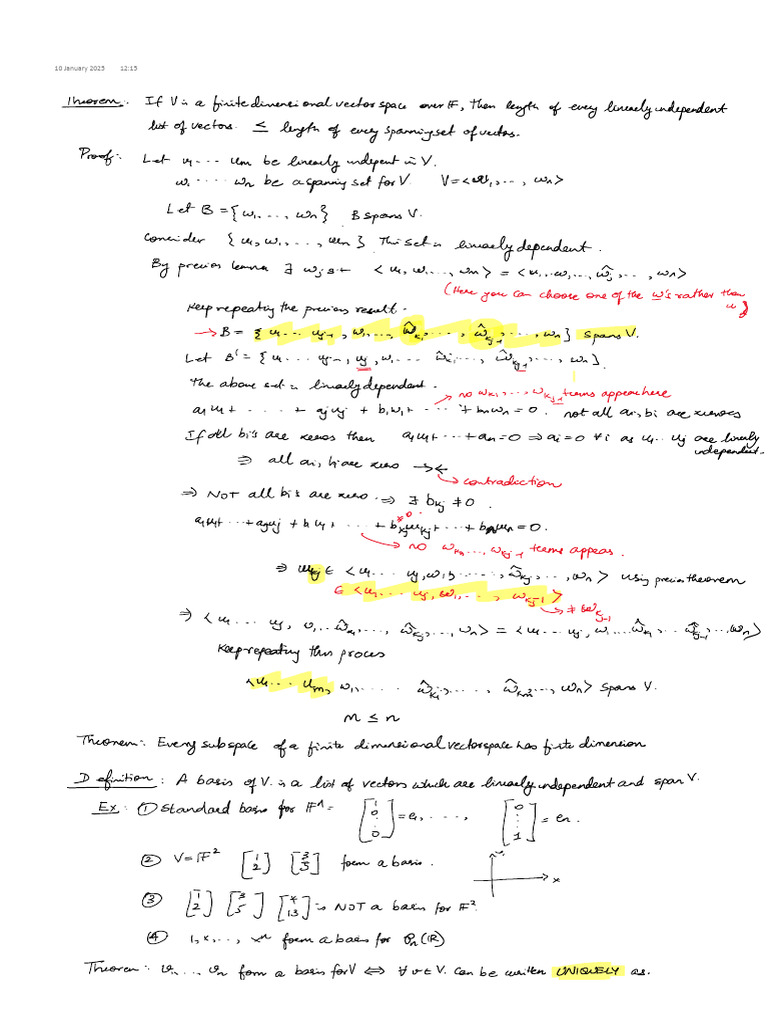 10 January 2025 12:15
Theorem: If V is a finite dimensional vector space over F, then length of every linearly independent
list of vectors ≤ length of every spanning set of vectors.
Proof: Let u₁ ... uₘ be linearly indepent in V.
w₁ ... wₙ be a spanning set for V. V = <w₁, ..., wₙ>
Let B = {w₁, ..., wₙ} B spans V.
Consider {u₁, w₁, ..., wₙ} This set is linearly dependent.
By previous lemma ∃ wⱼ s.t <u₁, w₁, ..., wₙ> = <u₁, w₁, ..., ŵⱼ, ..., wₙ>
(Here you can choose one of the w's rather than u₁)
Keep repeating the previous result.
→ B = {u₁ ... uⱼ₋₁, w₁, ..., ŵₖ₁, ..., ŵₖⱼ₋₁, ..., wₙ} spans V.
Let B' = {u₁ ... uⱼ₋₁, uⱼ, w₁ ... ŵₖ₁, ..., ŵₖⱼ₋₁, ..., wₙ}.
The above set is linearly dependent. → no wₖ₁, ..., wₖⱼ₋₁ terms appear here
a₁u₁ + ... + aⱼuⱼ + b₁w₁ + ... + bₙwₙ = 0. not all aᵢ, bᵢ are zeroes
If all bᵢ's are zeros then a₁u₁ + ... + aₙ = 0 ⇒ aᵢ = 0 ∀ i as u₁ ... uⱼ are linearly independent.
⇒ all aᵢ, bᵢ are zero →←
→ contradiction
⇒ NOT all bᵢ's are zero ⇒ ∃ bₖⱼ ≠ 0.
≠0
a₁u₁ + ... + aⱼuⱼ + b₁w₁ + ... + bₖⱼwₖⱼ + ... + bₙwₙ = 0.
→ no wₖ₁, ..., wₖⱼ₋₁ terms appear.
⇒ wₖⱼ ∈ <u₁ ... uⱼ, w₁, ..., ŵₖⱼ, ..., wₙ> using previous theorem
∈ <u₁, ... uⱼ, w₁, ..., wₖⱼ₋₁>
⇒ <u₁ ... uⱼ, w₁ ... ŵₖ₁, ..., ŵₖⱼ, ..., wₙ> = <u₁ ... uⱼ, w₁ ... ŵₖ₁ ... ŵₖⱼ₋₁ ... wₙ>
Keep repeating this process
<u₁ ... uₘ, w₁, ... ŵₖ₁, ..., ŵₖₘ, ..., wₙ> spans V.
m ≤ n
Theorem: Every subspace of a finite dimensional vector space has finite dimension
Definition: A basis of V is a list of vectors which are linearly independent and span V.
Ex: ① Standard basis for Fⁿ = [1 0 ⋮ 0] = e₁, ..., [0 0 ⋮ 1] = eₙ.
② V = F² [1 2] [3 5] form a basis. x
③ [1 2] [3 5] [4 13] is NOT a basis for F².
④ 1, x, ..., xⁿ form a basis for Pₙ(R)
Theorem: v₁, ..., vₙ form a basis for V ⇔ ∀ v ∈ V. can be written UNIQUELY as.